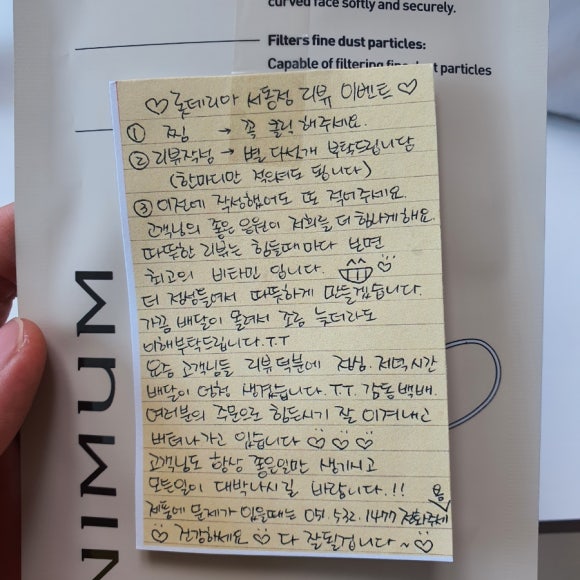 curved face softly and securely.
Filters fine dust particles:
Capable of filtering fine dust particles
♡롯데리아 서동점 리뷰 이벤트♡
① 찜 → 꼭 클릭 해주세요.
② 리뷰작성 → 별 다섯개 부탁드립니담
(한마디만 적으셔도 됩니다)
③ 이전에 작성했어도 또 적어주세요.
고객님의 좋은 응원이 저희를 더 힘나게해요.
따뜻한 리뷰는 힘들때 마다 보면
최고의 비타민 입니다.
더 정성들여서 따뜻하게 만들겠습니다.
가끔 배달이 몰려서 조금 늦더라도
이해부탁드립니다.T.T
요즘 고객님들 리뷰 덕분에 점심.저녁시간
배달이 엄청 생겼습니다.T.T. 감동백배.
여러분의 주문으로 힘든시기 잘 이겨내고
버텨나가고 있습니다 ♡ ♡ ♡
고객님도 항상 좋은일만 생기시고
모든일이 대박나시길 바랍니다.!!
제품에 문제가 있을때는 051.532.1477 전화주세용
♡ 건강하세요 ♡ 다 잘될겁니다~♡
NIMUM